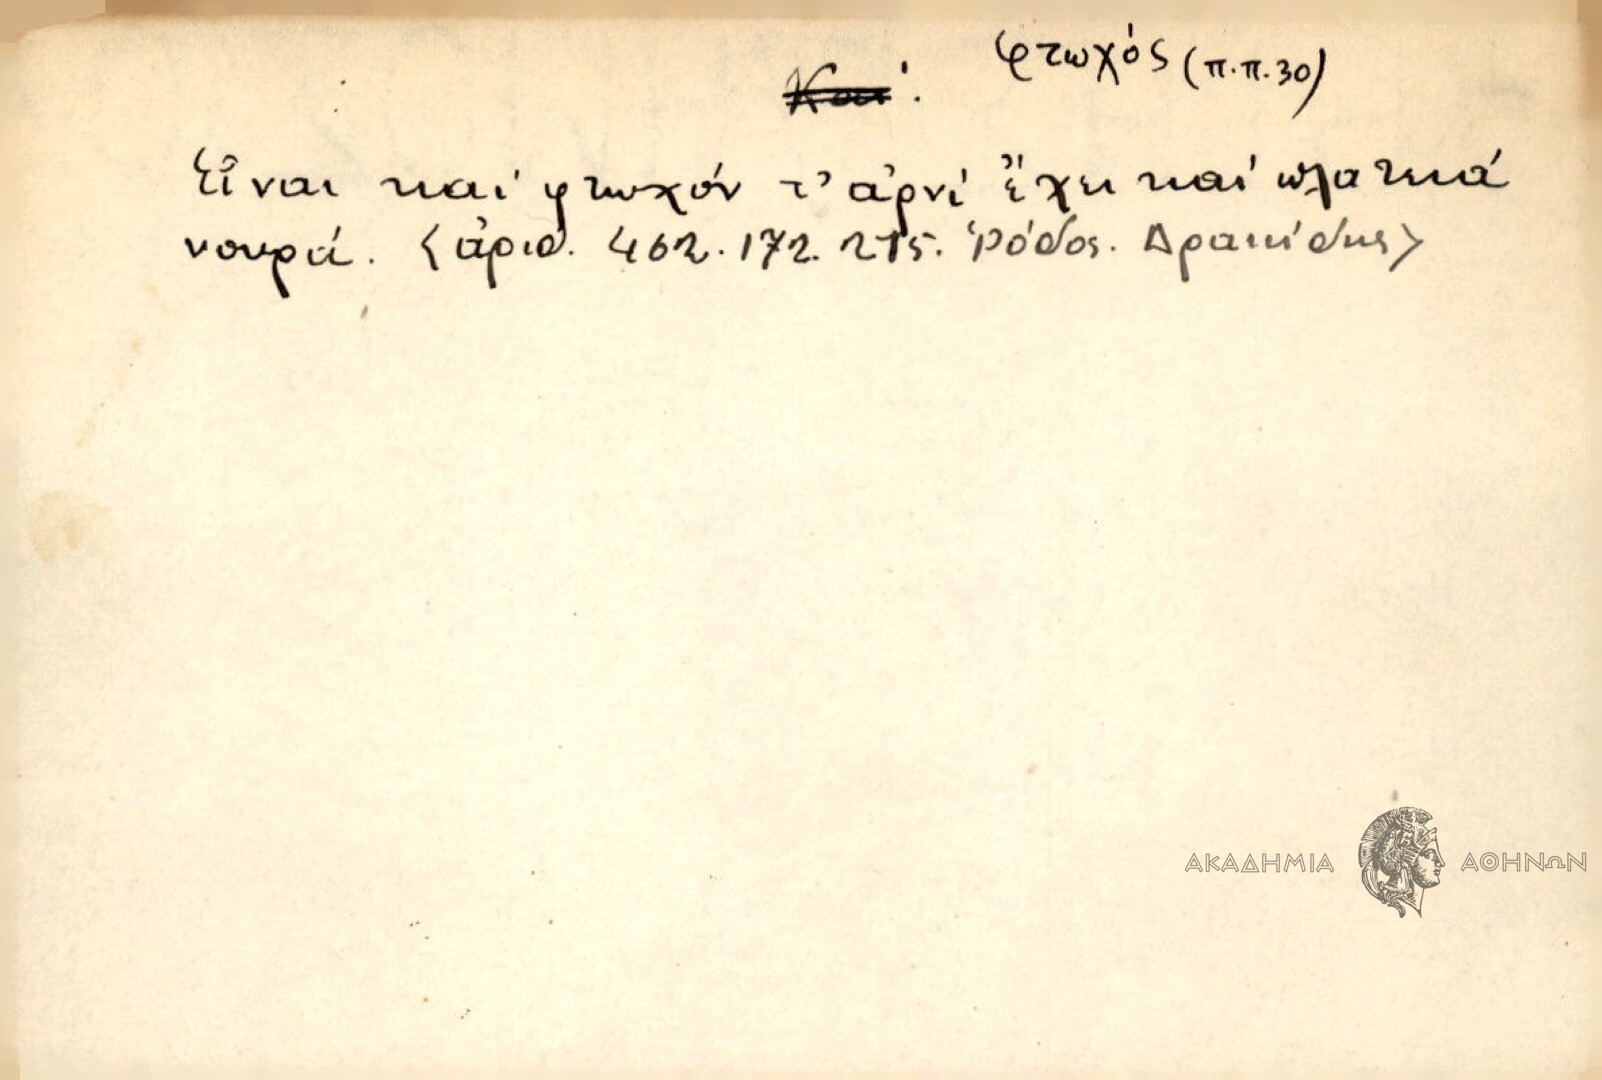 φτωχός (π.π.30)
Εἶναι καί φτωχόν τ' ἀρνί ἔχει καί πλατειά
νουρά. (ἀριθ. 462. 172. 215. Ῥόδος. Δρακίδης)
ΑΚΑΔΗΜΙΑ ΑΘΗΝΩΝ